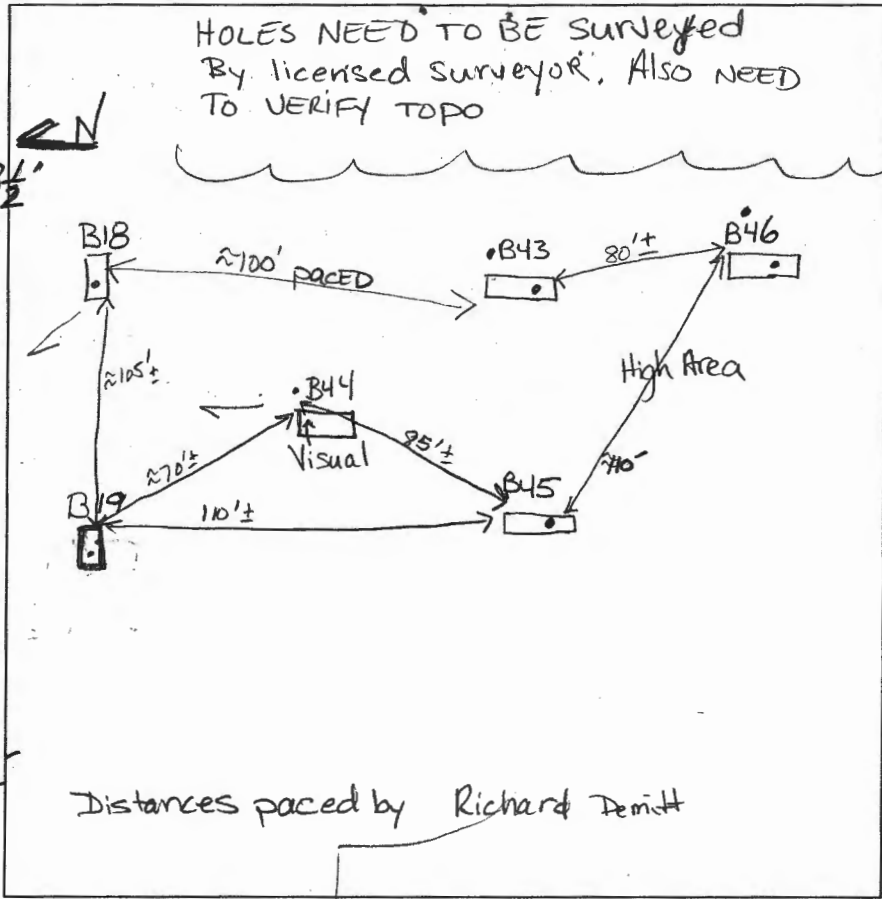 HOLES NEED TO BE surveyed
By licensed surveyor. Also NEED
To VERIFY TOPO
N
1/2"
B18
≈100' PACED
B43
80'±
B46
≈105'±
High Area
B44
Visual
≈70'±
85'±
B45
B19
110'±
Distances paced by Richard Demitt